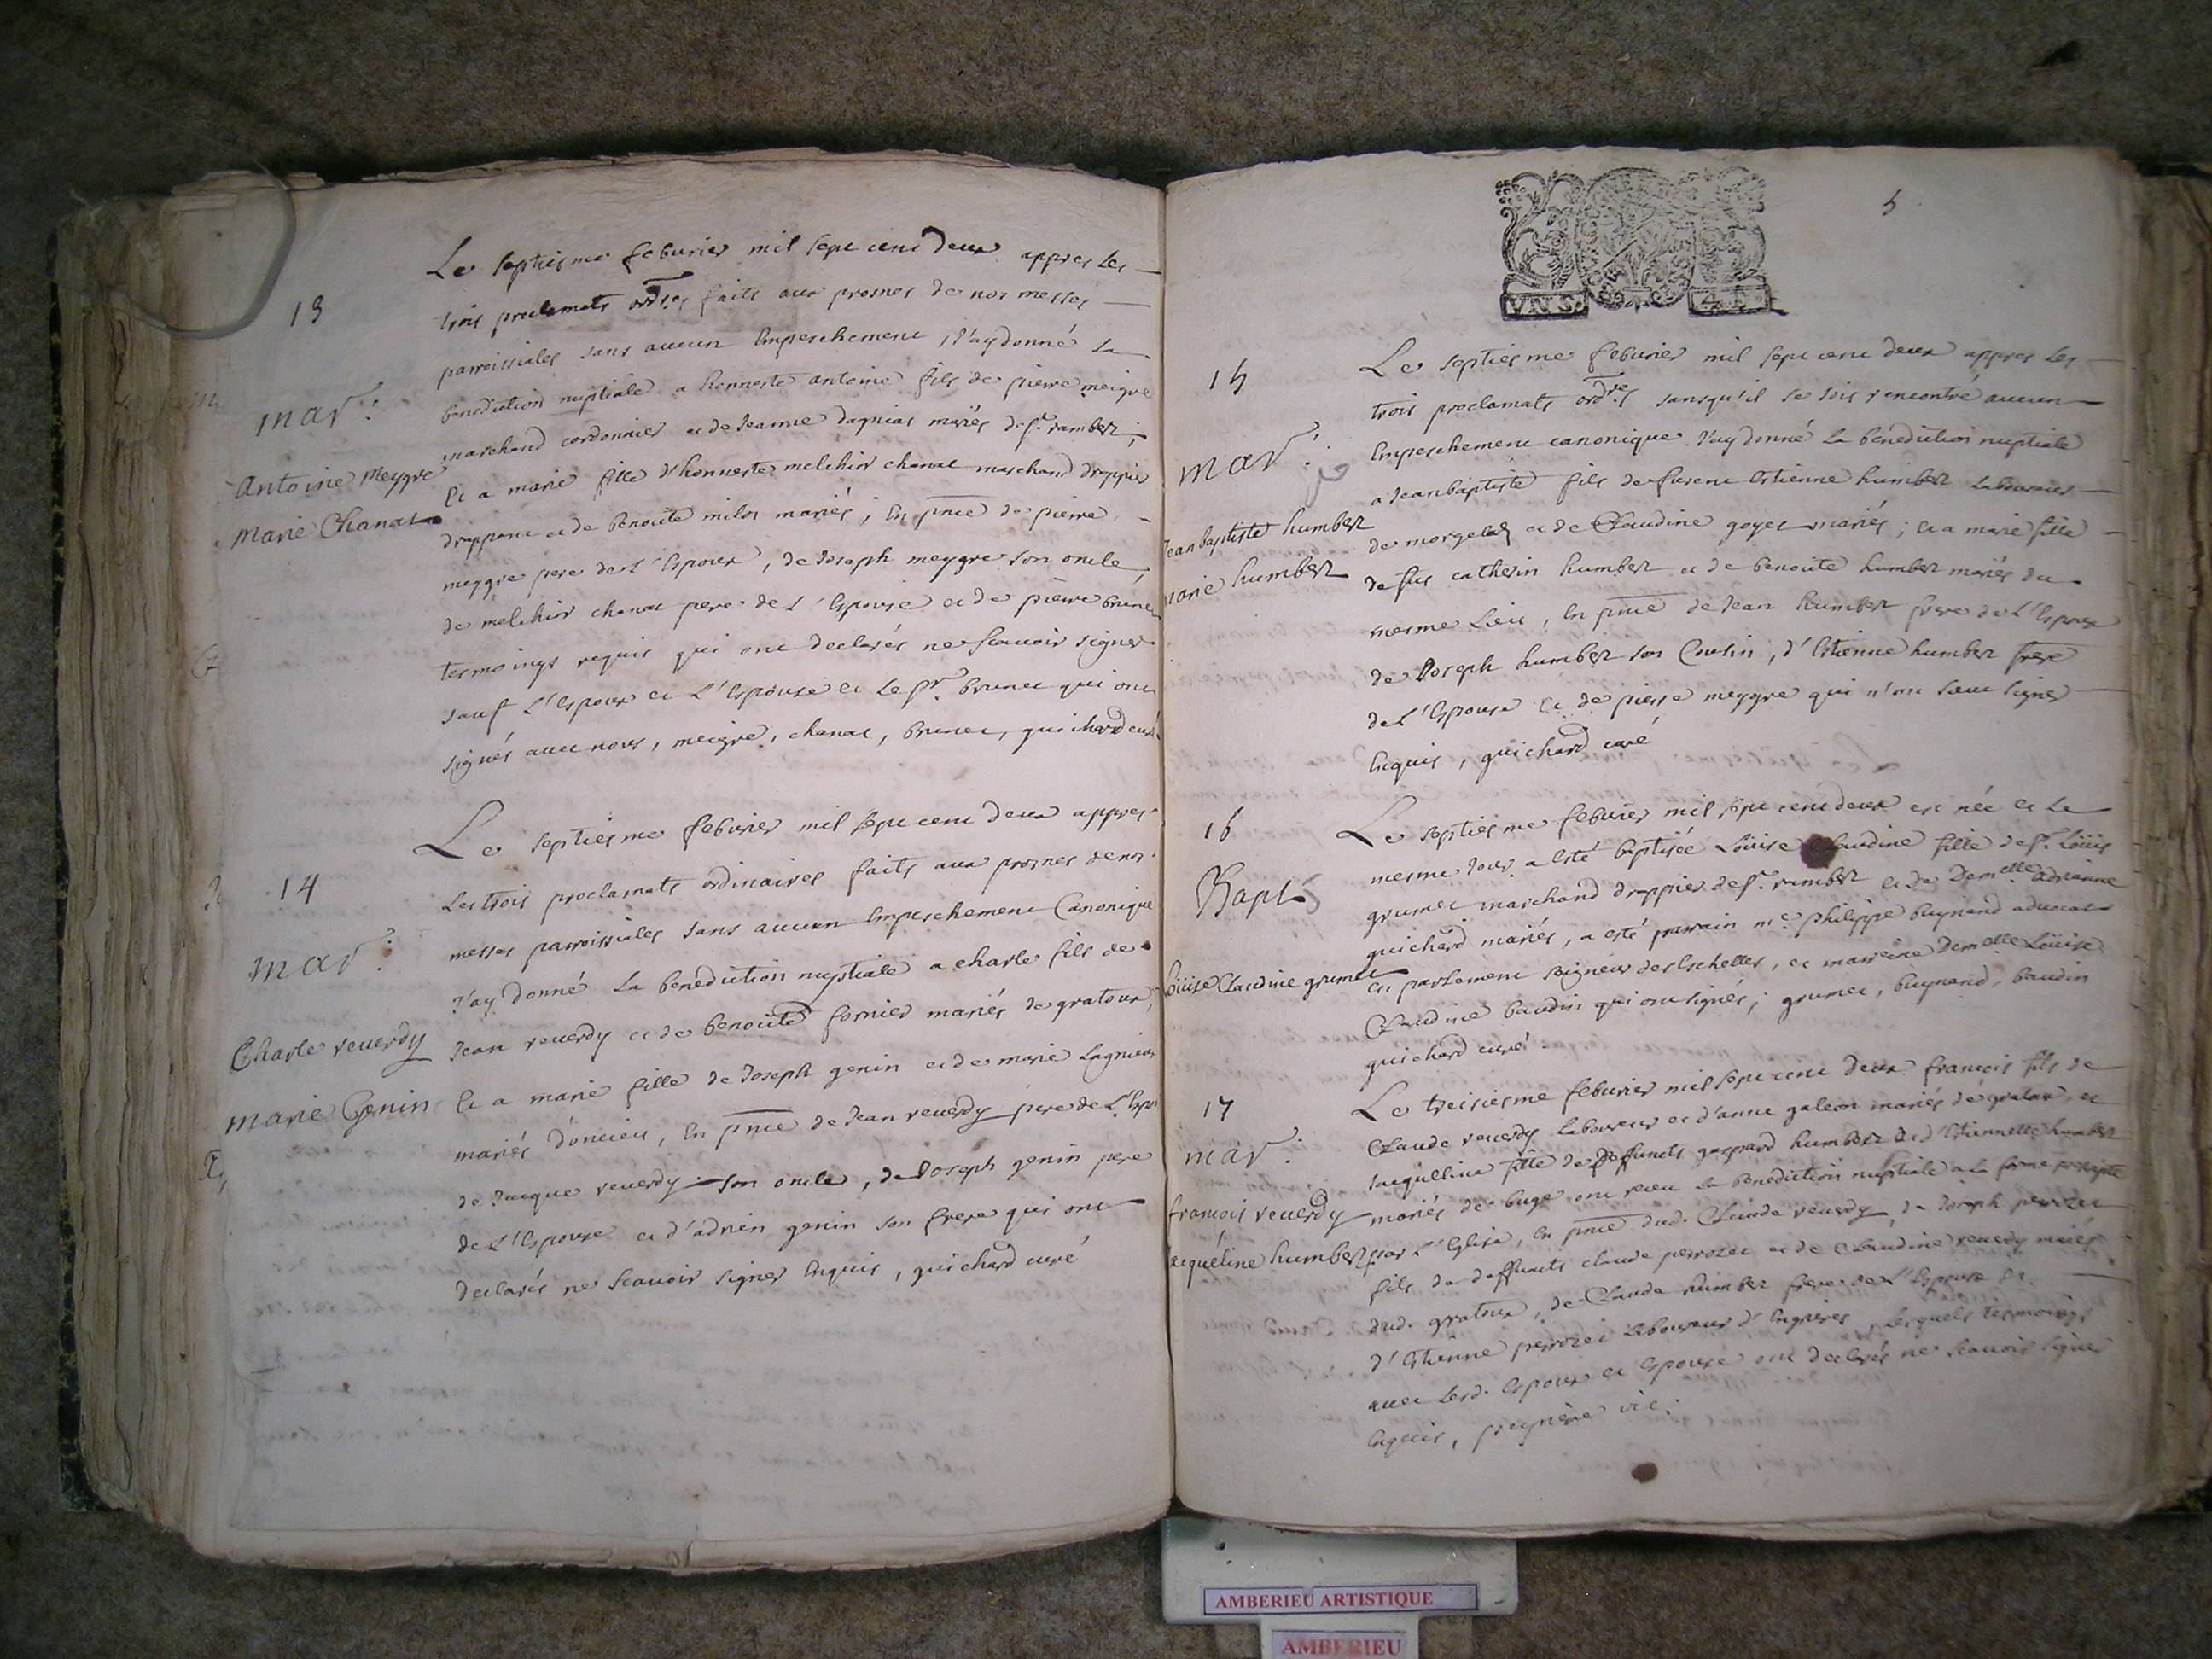 13
mar^r:
Antoine Meygre
Marie Chanat
Le septiesme feburier mil sept cent deux appres les
trois proclamats ord^res faits aux prosnes de nos messes
parroissiales sans aucun Empeschement, J'ay donné la
benediction nuptiale a honneste antoine fils de pierre meigre
marchand cordonnier et de Jeanne dagnias mariés de s^t rambert;
Et a marie fille d'honneste melchior chanat marchand drappier
drappant et de benoite milon mariés; En pnce de pierre
meygre pere de L'Espoux, de Joseph meygre son oncle,
de melchior chanat pere de L'Espouse et de pierre brunet
tesmoings requis qui ont declarés ne scauoir signer
sauf L'Espoux et L'Espouse et le s^r. brunet qui ont
signés auec nous, meigre, chanat, brunet, guichard curé
14
mar^r:
Charle reuerdy
Marie Genin
Le septiesme feburier mil sept cent deux appres
Les trois proclamats ordinaires faits aux prosnes de nos
messes parroissiales sans aucun Empeschement Canonique
J'ay donné La benediction nuptiale a charle fils de
Jean reuerdy et de benoite fornier mariés de gratoux,
Et a marie fille de Joseph genin et de marie Lagnieux
mariés d'oncieu, En pnce de Jean reuerdy pere de L'Espoux
de Jacque reuerdy son oncle, de Joseph genin pere
de L'Espouse et d'adrien genin son frere qui ont
declarés ne scauoir signer Enquis, guichard curé
5
15
mar^r:
Jean baptiste humbert
marie humbert
Le septiesme feburier mil sept cent deux appres les
trois proclamats ord^res sans qu'il se soit rencontré aucun
Empeschement canonique J'ay donné la benediction nuptiale
a Jean baptiste fils de furent Estienne humbert Laboureur
de morgelas et de Claudine goyet mariés; et a marie fille
de fus catherin humbert et de benoite humbert mariés du
mesme Lieu, En pnce de Jean humbert frere de L'Espoux
de Joseph humbert son Cousin, d'Estienne humbert frere
de L'Espouse et de pierre meygre qui n'ont sceu signer
Enquis, guichard curé
16
Bapt
Loüise Claudine grumet
Le septiesme feburier mil sept cent deux est née et le
mesme Jour a esté baptisée Loüise Claudine fille de s^r. Loüis
grumet marchand drappier de s^t. rambert et de Dem^elle adrianne
guichard mariés, a esté parrain m^e. philippe buynand aduocat
en parlement seigneur des Eschelles, et marreine Dem^elle Loüise
Claudine baudin qui ont signés; grumet, buynand, baudin
guichard curé
17
mar^r:
francois reuerdy
Jacqueline humbert
Le treisiesme feburier mil sept cent deux francois fils de
Claude reuerdy Laboureur et d'anne galeon mariés de gratoux, et
Jaqueline fille de deffuncts gaspard humbert et d'Estiennette humbert
mariés de buge ont receu La benediction nuptiale a la forme prescripte
par L'Eglise, En pnce dud. Claude reuerdy, de Joseph perrozet
fils de deffuncts claude perrozet et de Claudine reuerdy mariés
dud. gratoux, de Claude humbert frere de L'Espouse Et
d'Estienne perrozet Laboureur d'Engrieres, Lesquels tesmoings
auec Lesd. Espoux et Espouse ont declarés ne scauoir signer
Enquis, vic:
AMBERIEU ARTISTIQUE
AMBERIEU